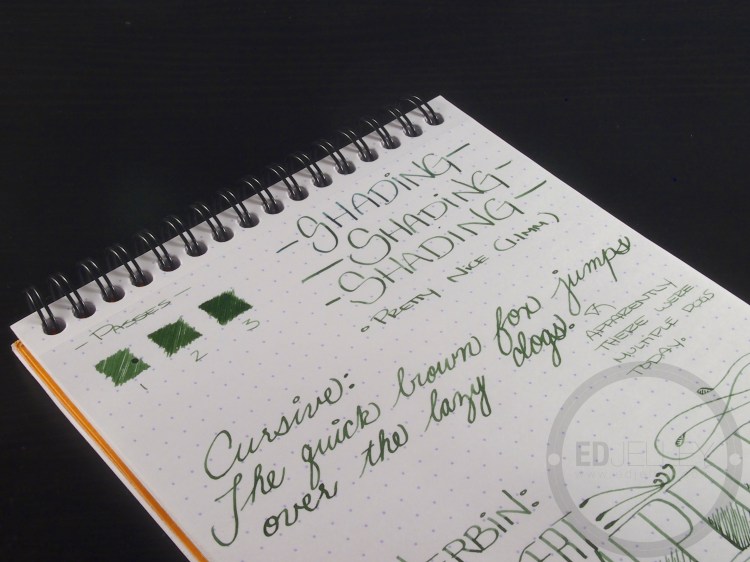 -SHADING-
-SHADING-
-SHADING-
• PRETTY NICE (1.1MM)
-PASSES-
1 2 3
Cursive:
The quick brown fox jumps
over the lazy dogs.
APPARENTLY
THERE WERE
MULTIPLE DOGS
TODAY.
ERBIN:
ED JELLEY